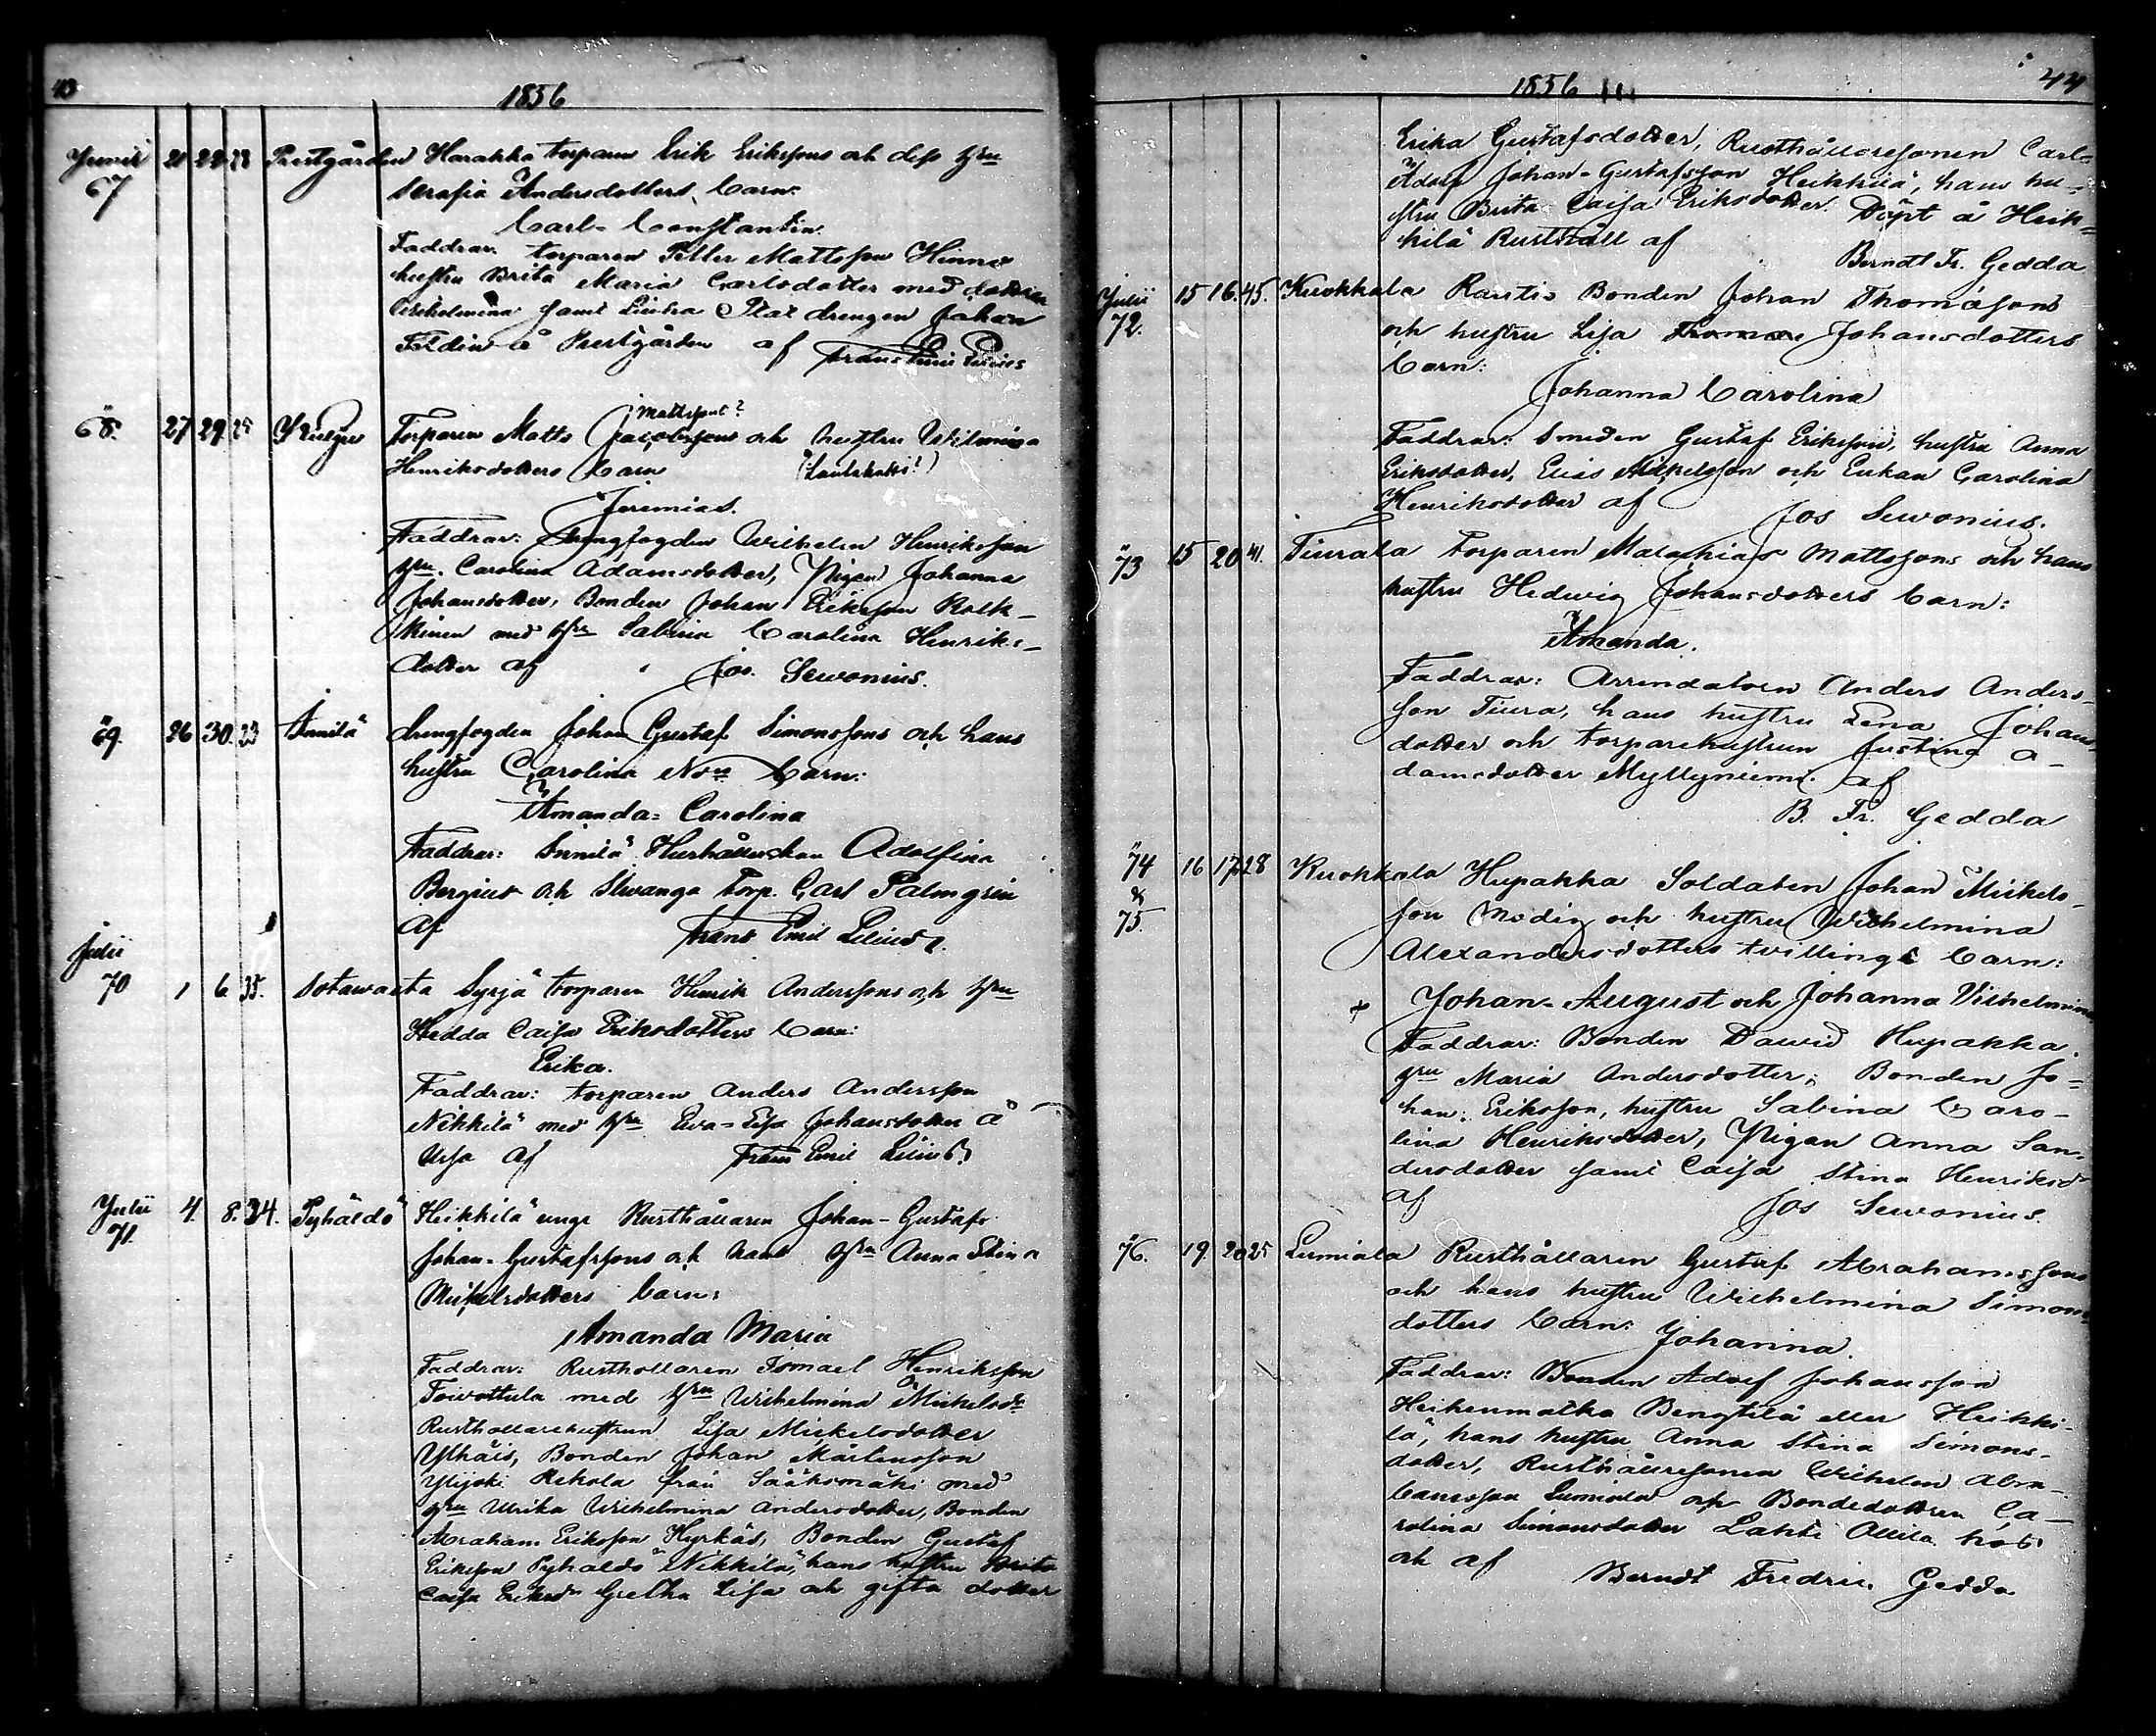 43
1856
Junii 67 21 22 23 Prestgården Harakka torparen Erik Erikssons och dess hru
Serafia Andersdotters barn:
Carl-Constantin
Faddrar: torparen Petter Mattsson Hinna
hustru Brita Maria Carlsdotter med dottren
Wilhelmina samt drengen Johan
å Prestgården af Frans Emil Lilius
" 68. 27 29 25 Torparen Matts Jacobssons och hustru Wilhelmina
Mattssons?
Henriksdotters barn
Jeremias.
Faddrar: Drengfogden Wilhelm Henriksson
hru Carolina Adamsdotter, Pigan Johanna
Johansdotter, Bonden Johan Eriksson
med hru Sabina Carolina Henriks-
dotter af Jos. Sewonius.
" 69. 26 30 23 Annila drengfogden Johan Gustaf Simonssons och hans
hustru Carolina barn:
Amanda-Carolina
Faddrar: Annila Hushållerskan Adolfina
Bergius och Torp. Carl Palmgren
af Frans Emil Lilius
Julii
70 1 6 35. Sotawalta Syrjä torparen Henrik Anderssons och hru
Hedda Caisa Eriksdotters barn:
Erika.
Faddrar: torparen Anders Andersson
Nikkilä med hru Ewa-Lisa Johansdotter å
af Frans Emil Lilius
Julii 71. 4. 8. 34. Pyhäldö Heikkilä unge Rusthållaren Johan-Gustafs
Johan-Gustafssons och hans hru Anna Stina
Mickelsdotters barn:
Amanda Maria
Faddrar: Rusthollaren Ismael Henriksson
Towottula med hru Wilhelmina Mickelsdr
Rusthollarehustrun Lisa Mickelsdotter
Bonden Johan Mårtensson
Ylijoki Rekola från Sääksmäki med
hru Ulrika Wilhelmina Andersdotter, Bonden
Abraham Eriksson Hyrkäs, Bonden Gustaf
Eriksson Pyhäldö Nikkilä, hans hustru Brita
Caisa Eriksdr Gretha Lisa och gifta dotter
44
1856
Erika Gustafsdotter, Rusthållaresonen Carl-
Adolf Johan-Gustafsson Heikkilä, hans hu-
stru Brita Caisa Eriksdotter. Döpt å Heik-
kilä Rusthåll af
Berndt Fr. Gedda
Julii 72. 15 16. 45. Kuokkala Rantis Bonden Johan Thomassons
och hustru Lisa Johansdotters
barn:
Johanna Carolina
Faddrar: Smeden Gustaf Eriksson, hustru Anna
Eriksdotter, Elias Mickelsson och Enkan Carolina
Henriksdotter af Jos Sewonius.
" 73 15 20 41. Tiurala Torparen Malachias Mattssons och hans
hustru Hedwig Johansdotters barn:
Amanda.
Faddrar: Arrendatorn Anders Anders-
son Tiura, hans hustru Lena Johans-
dotter och torparehustrun Justina A-
damsdotter Myllyniemi af
B. Fr. Gedda
" 74 & 75. 16 17 28 Kuokkala Hupakka Soldaten Johan Mickels-
son Modig och hustru Wilhelmina
Alexandersdotters tvillinge barn:
+ Johan-August och Johanna Vilhelmina
Faddrar: Bonden Dawid Hupakka.
hru Maria Andersdotter; Bonden Jo-
han Eriksson, hustru Sabina Caro-
lina Henriksdotter, Pigan Anna San-
dersdotter samt Caisa Stina Henriksdr
af Jos Sewonius.
" 76. 19. 20 25 Lumiala Rusthållaren Gustaf Abrahamssons
och hans hustru Wilhelmina Simons-
dotters barn: Johanna.
Faddrar: Bonden Adolf Johansson
Heikenmatka Bengtilä eller Heikki-
lä, hans hustru Anna Stina Simons-
dotter, Rusthållaresonen Wilhelm Abra-
hamsson Lumiala och Bondedottren Ca-
rolina Simonsdotter Lahti Ollila hos
och af Berndt Fredric Gedda.